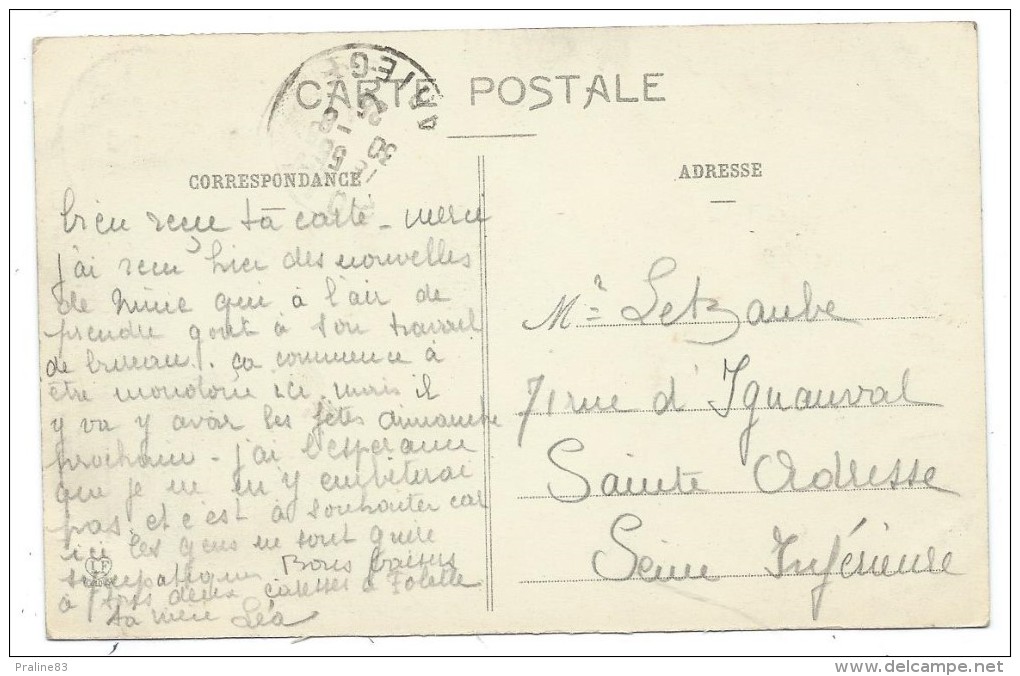 CARTE POSTALE
ARIEGE
CORRESPONDANCE
ADRESSE
bien reçu ta carte - merci
j'ai reçu hier des nouvelles
de Mimie qui a l'air de
prendre gout à son travail
de bureau. ça commence à
être monotone ici, mais il
y va y avoir les fêtes dimanche
prochain - j'ai l'espérance
que je ne m'y embêterai
pas, et c'est à souhaiter car
ici les gens ne sont guère
sympatiques Bons baisers
à tous deux, caresses à Folette
ta mère Léa
Mr Letzaube
71 rue d'Ignauval
Sainte Adresse
Seine Inférieure
Praline83
www.delcampe.net